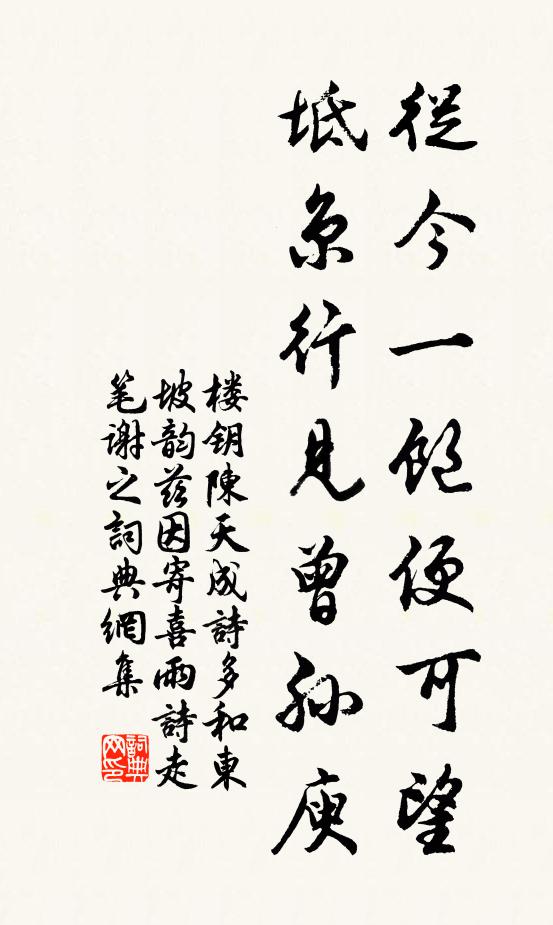 從今一飽便可望
坻京行見曾孫庾
楼钥陳天成詩多和東
坡韵兹因寄喜雨詩走
笔謝之詞典網集
詞典网印